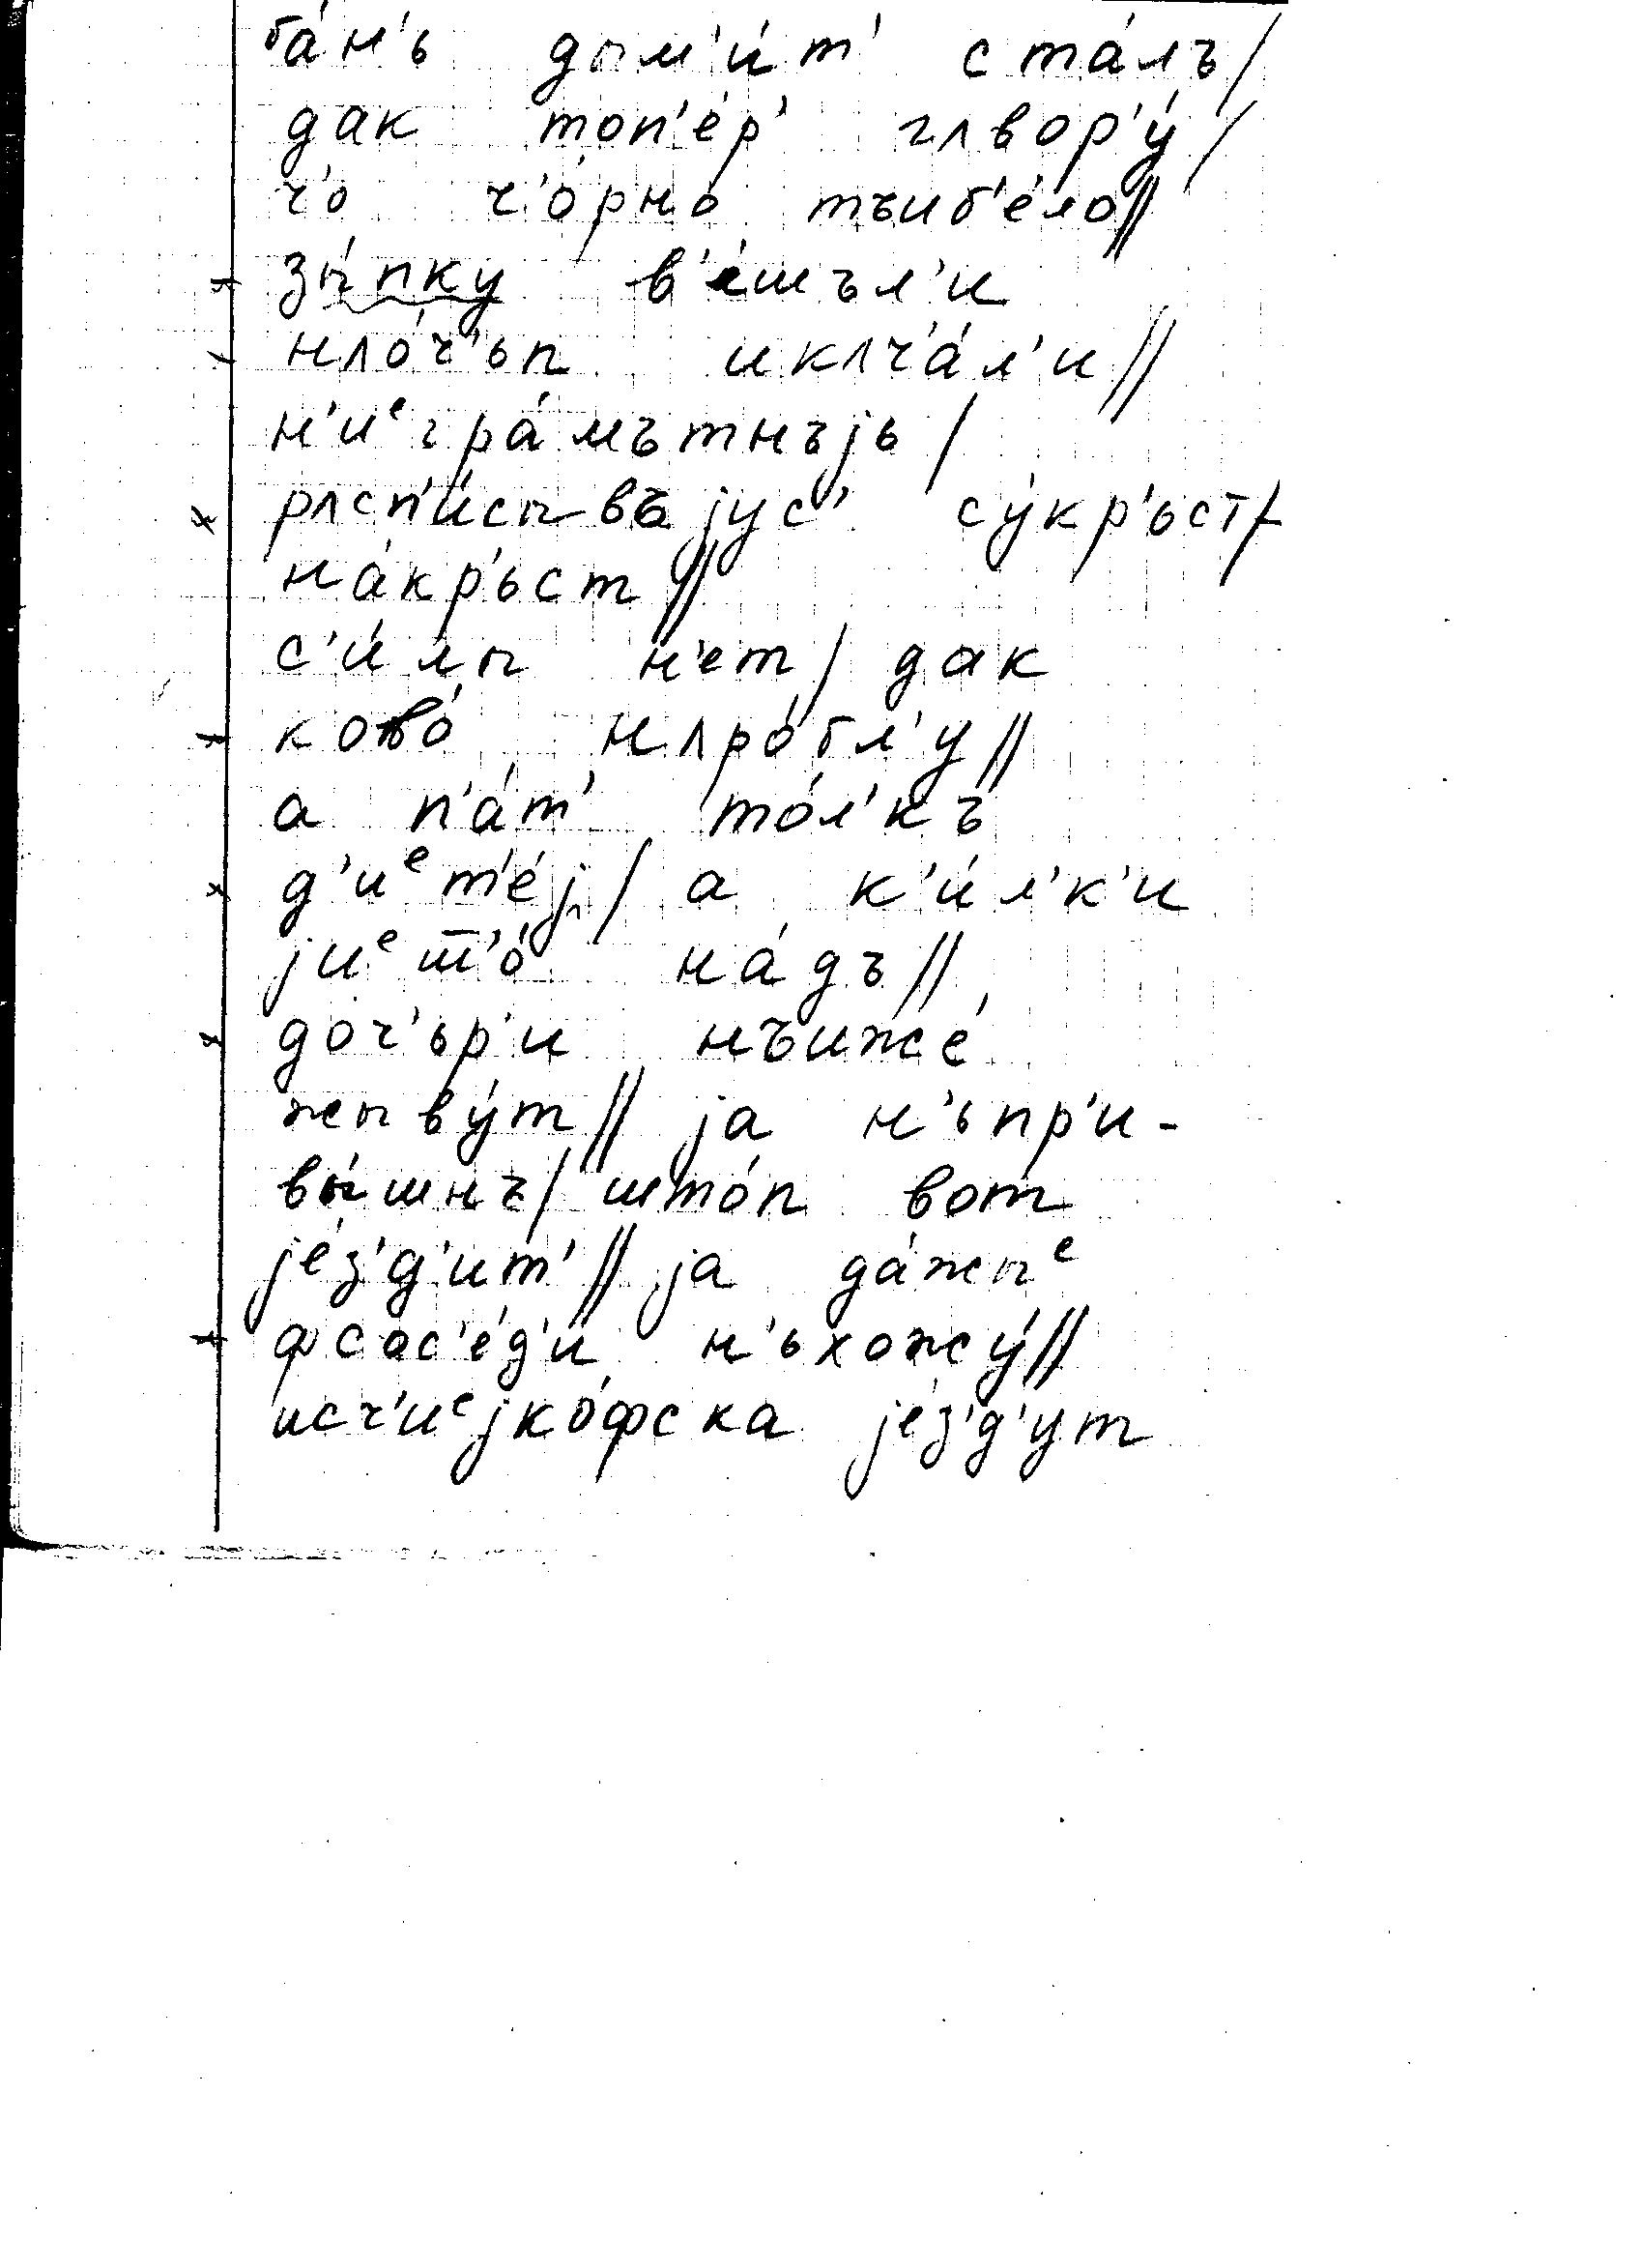 ба́н'ь дым'и́т' ста́лъ/
дак топ'е́р' гʌвор'у́/
ч'о ч'о́рно тъиб'е́ло//
зы́пку в'е́шъл'и
нʌо́ч'ьп икʌч'а́л'и//
н'иᵉгра́мътнъjь/
рʌсп'и́сывъjус' су́кр'ьст/
на́кр'ьст//
с'и́лы н'ет/ дак
ково́ нʌро́бл'у//
а п'а́т' то́л'къ
д'иᵉт'е́j/ а к'и́л'к'и
jиᵉшʼо́ на́дъ//
доч'ьр'и нъиже́
жыву́т// jа н'ьпр'и-
вы́шнъ/ што́п вот
jе́з'д'ит'// jа да́жыᵉ
фсос'е́д'и н'ьхожу́//
исч'иᵉjко́фска jе́з'д'ут